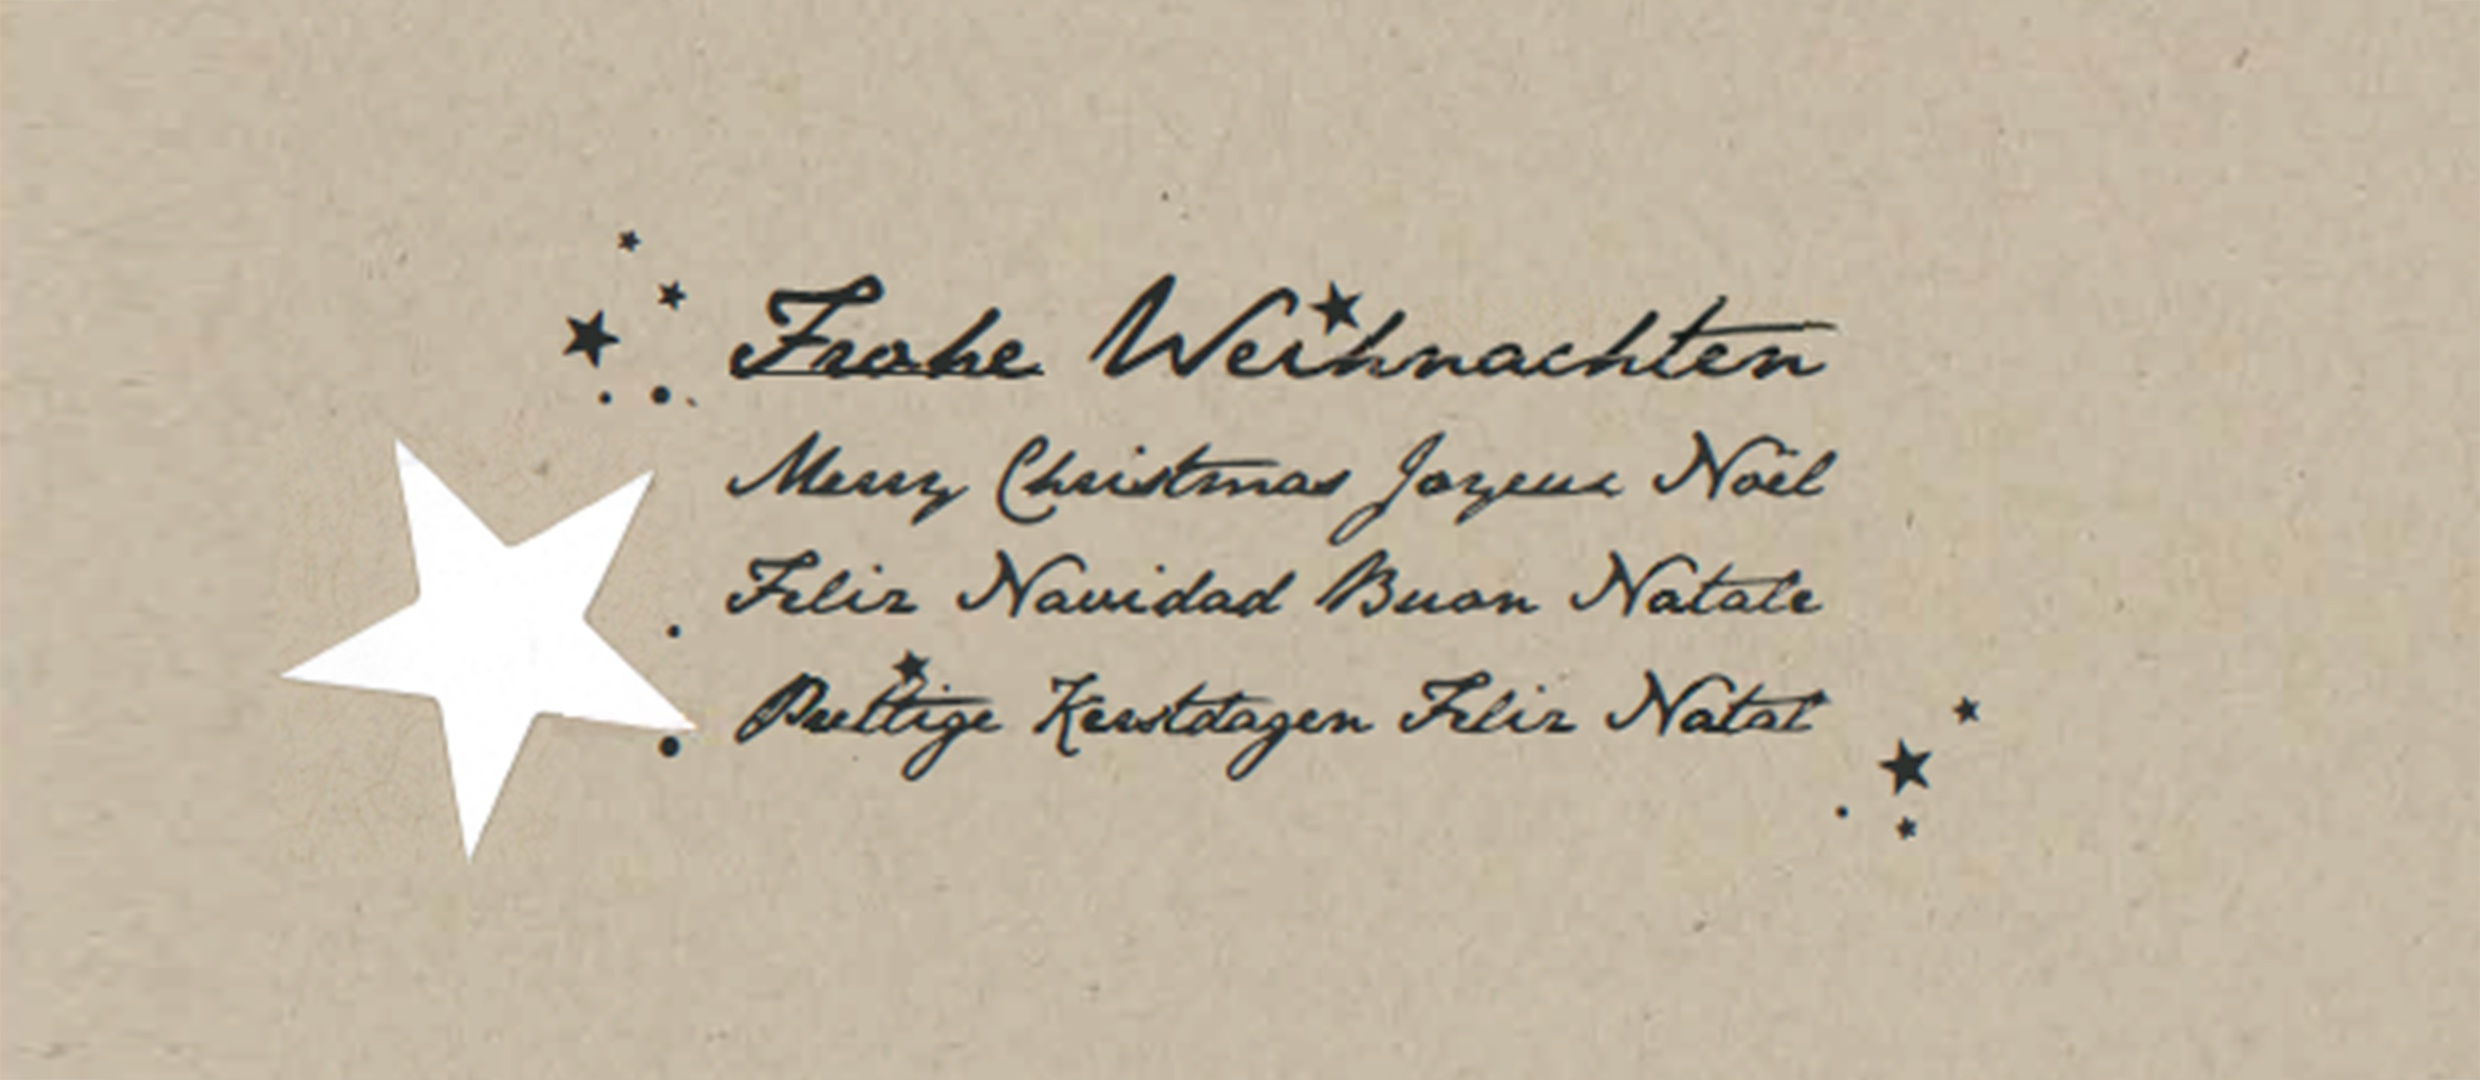 Frohe Weihnachten
Merry Christmas Joyeux Noël
Feliz Navidad Buon Natale
Prettige Kerstdagen Feliz Natal